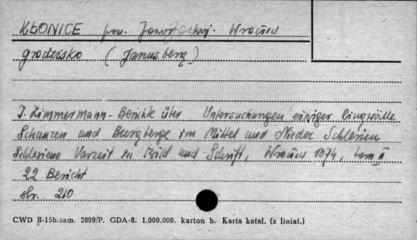 KŁONICE pow. Jawor Wrocław
grodzisko (Janusberg)
Zimmermann - Berichte über Untersuchungen einiger Ringwälle
Schanzen und Burgberge im Mittel und Nieder Schlesien
Schlesiens Vorzeit in Bild und Schrift, Wrocław 1874, tom II
22 Bericht
str. 210
CWD B-15b.zam. 2899/P. GDA-8. 1.000.000. karton b. Karta katal. (z liniat.)